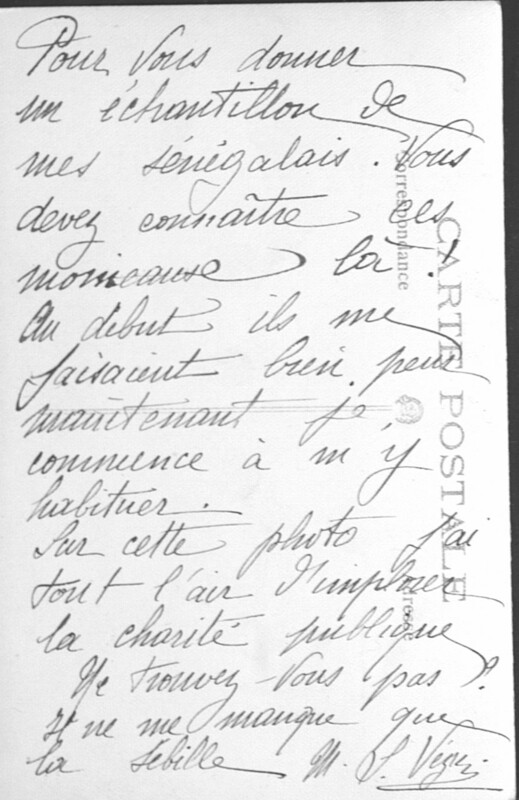 Pour vous donner
un échantillon de
mes sénégalais. Vous
devez connaître ces
là !
Au début ils me
faisaient bien peur
maintenant je
commence à m'y
habituer.
Sur cette photo j'ai
tout l'air d'implorer
la charité publique
Ne trouvez-vous pas ?
Il ne me manque que
la sébille M. S.
CARTE POSTALE
Correspondance